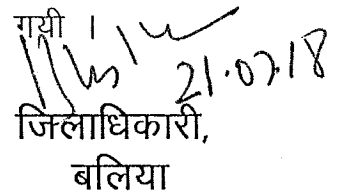 गयी ।
21.07.18
जिलाधिकारी,
बलिया